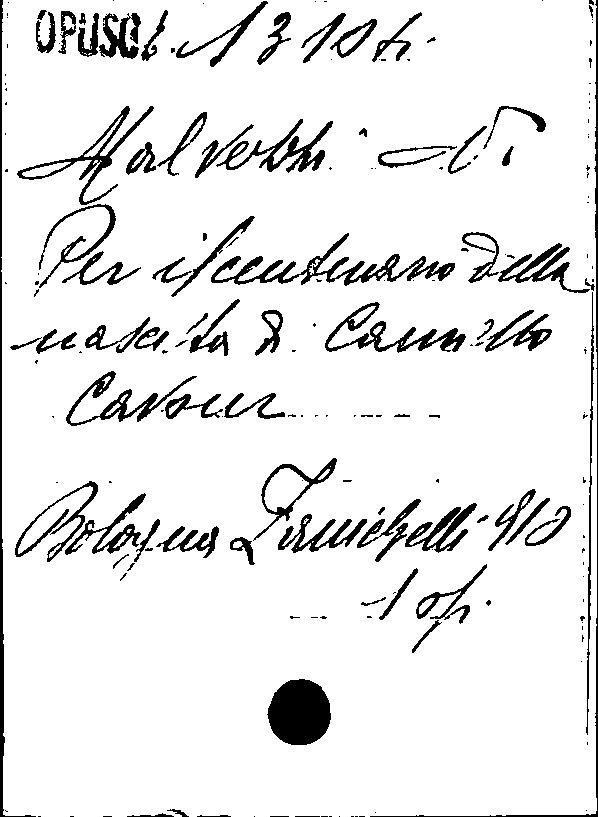 OPUSC. 1310 tr.
Malvezzi N.
Per il centenario della
nascita di Camillo
Cavour
Bologna Zanichelli 910
1 op.